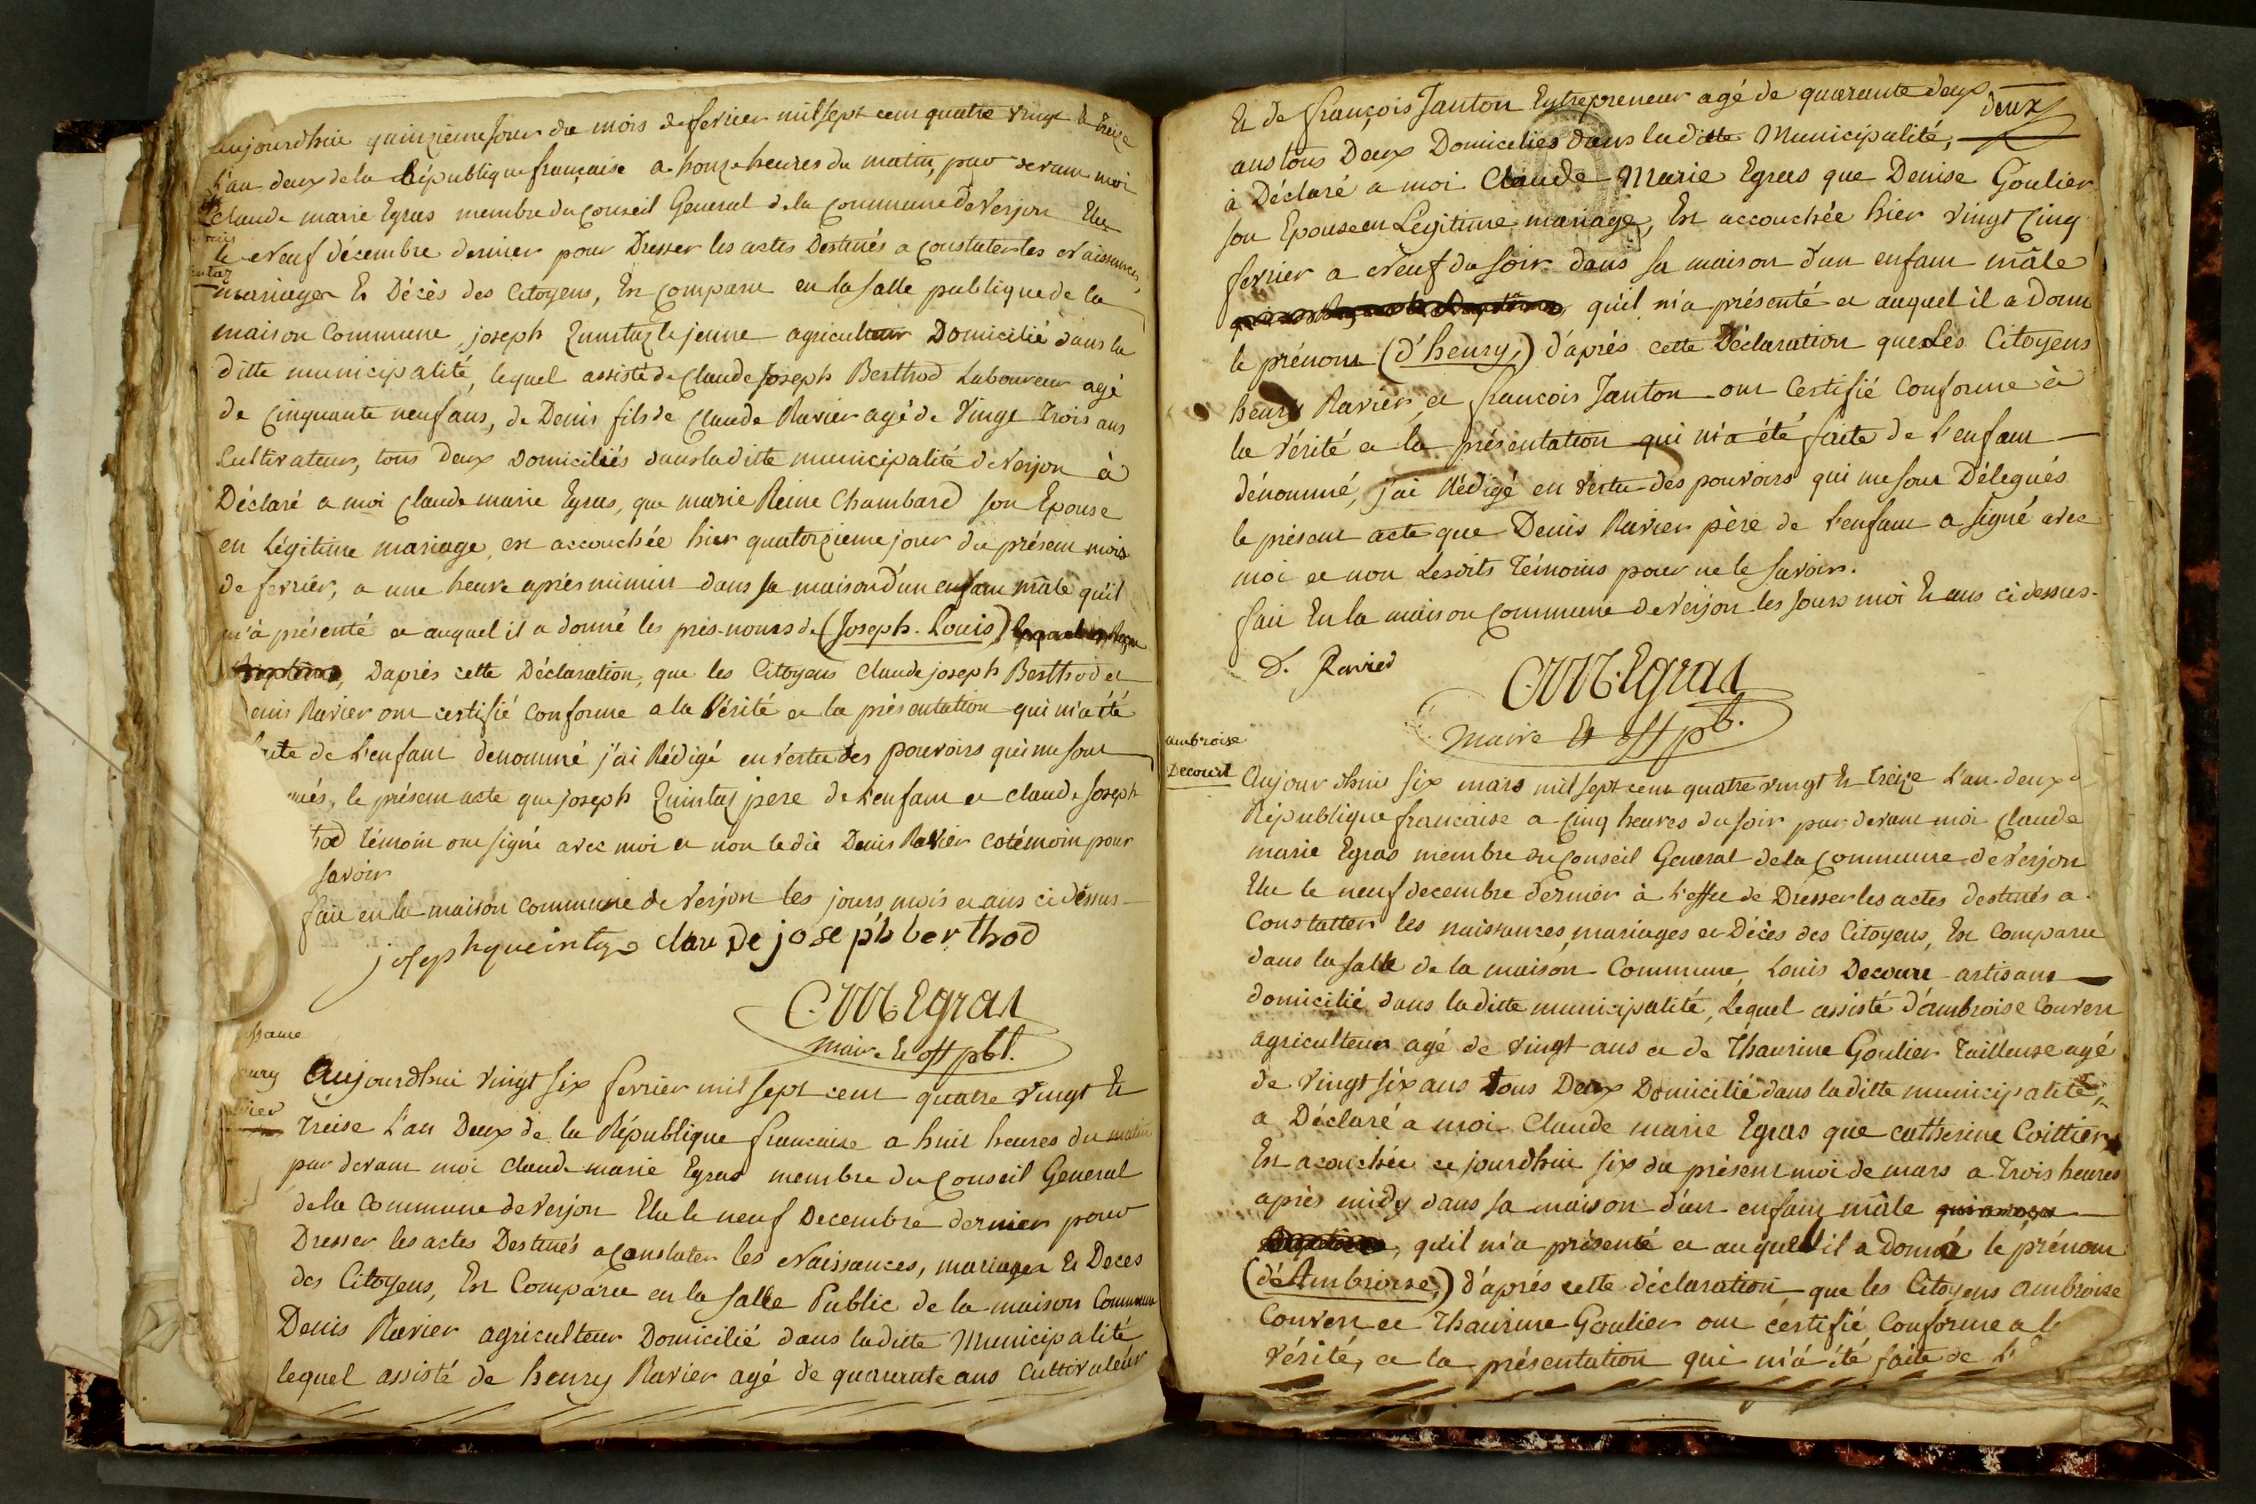 aujourdhui quinzieme Jour du mois de fevrier mil sept cent quatre vingt & treize
L'an deux de la République française a honze heures du matin, par devant moi
Claude marie Egras membre du Conseil General de la Commune de Verjon Elu
le Neuf décembre dernier pour Dresser les actes Destinés a Constater les Naissances,
mariages Et Décès des Citoyens, Est Comparu en la salle publique de la
maison Commune, joseph Quintaz le jeune agriculteur Domicilié dans la
ditte municipalité, lequel assisté de Claude Joseph Berthod Laboureur agé
de Cinquante neuf ans, de Denis fils de Claude Ravier agé de Vingt Trois ans
Cultivateur, tous Deux Domiciliés dans la ditte municipalité de Verjon à
Déclaré a moi Claude marie Egras, que marie Reine Chambard son Epouse
en Légitime mariage, est accouchée hier quatorzieme jour du présent mois
de fevrier, a une heure après mimin dans sa maison d'un enfant mâle qu'il
m'à présenté et auquel il a donné les pres-noms de (Joseph. Louis)
Daprès cette Déclaration, que les Citoyens Claude joseph Berthod et
enis Ravier ont certifié conforme a la Vérité et la présentation qui m'a été
aite de L'enfant denommé j'ai Rédigé en vertu des pouvoirs qui me sont
ués, le présent acte que joseph Quintaz pere de L'enfant et Claude Joseph
hod Témoin ont signé avec moi et non ledit Denis Ravier cotémoin pour
savoir
fait en la maison commune de Verjon les jours mois et ans ci dessus
joseph queintaz claude joseph berthod
C. M. Egras
maire & off pbl.
Aujourdhui vingt six fevrier mil sept cent quatre vingt Et
Treise L'an Deux de la République francaise a huit heures du matin
par devant moi Claude marie Egras membre du Conseil General
de la Commune de Verjon Elu le neuf Decembre dernier pour
Dresser les actes Destinés a Constater les Naissances, mariages Et Deces
des Citoyens, Est Comparu en la salle Public de la maison Commune
Denis Ravier agriculteur Domicilié dans la ditte Municipalité
lequel assisté de henry Ravier agé de quarante ans Cultivateur
Et de françois Janton Entrepreneur agé de quarante deux
deux
ans tous Deux Domiciliés dans la ditte Municipalité,
à Déclaré a moi Claude Marie Egras que Denise Goulier
son Epouse en Légitime mariage, Est accouchée hier vingt Cinq
fevrier a Neuf du soir dans sa maison d'un enfant mâle
qu'il m'a présenté et auquel il a Donn
le prénom (d'henry,) d'après cette Déclaration que Les Citoyens
henry Ravier et francois Janton ont Certifié Conforme à
la Vérité et la présentation qui m'a été faite de L'enfant
dénommé, j'ai Rédigé en vertu des pouvoirs qui me sont Délegués
le présent acte que Denis Ravier père de L'enfant a signé avec
moi et non Lesdits Témoins pour ne le savoir.
fait En la maison Commune de Verjon les Jours moi Et ans ci dessus.
D. Ravier
C. M. Egras
maire Et off pb.
ambroise
Decouri
Aujourdhui six mars mil sept cent quatre vingt Et Treize L'an deux d
République francaise a Cinq heures du soir par devant moi Claude
marie Egras membre du Conseil General de la Commune de Verjon
Elu le neuf decembre dernier à L'effet de Dresser les actes destinés a
Constatter les naissances, mariages et Décès des Citoyens, Est Comparu
dans la salle de la maison Commune, Louis Decouri artisant
domicilié dans la ditte municipalité, Lequel assisté d'ambroise Convert
agriculteur agé de vingt ans et de Thaurine Goulier Tailleuse agé
de vingt six ans Tous Deux Domicilié dans la ditte municipalité,
a Déclaré a moi Claude marie Egras que catherine Coittier,
Est acouchée ce jourdhui six du présent moi de mars a Trois heures
après midy dans sa maison d'un enfant mâle
qu'il m'a présenté et auquel il a Donné le prénom
(d'Ambroise,) d'après cette déclaration que les Citoyens ambroise
Convert et Thaurine Goulier ont certifié Conforme a l
Vérité, et la présentation qui m'a été faite de L'